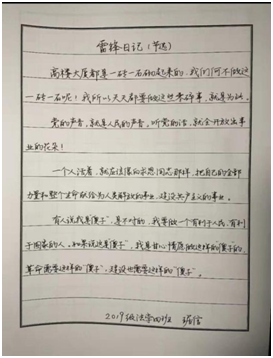 雷锋日记（节选）
高楼大厦都是一砖一石砌起来的，我们何不做这
一砖一石呢！我所以天天都要做这些零碎事，就是为此。
党的声音，就是人民的声音，听党的话，就会开放出事
业的花朵！
一个人活着，就应该像白求恩同志那样，把自己的全部
力量和整个生命献给为人类解放的事业，建设共产主义的事业。
有人说我是“傻子”，是不对的，我要做一个有利于人民，有利
于国家的人，如果说这是“傻子”，我是甘心情愿做这样的“傻子”的，
革命需要这样的“傻子”，建设也需要这样的“傻子”。
2019级法学四班